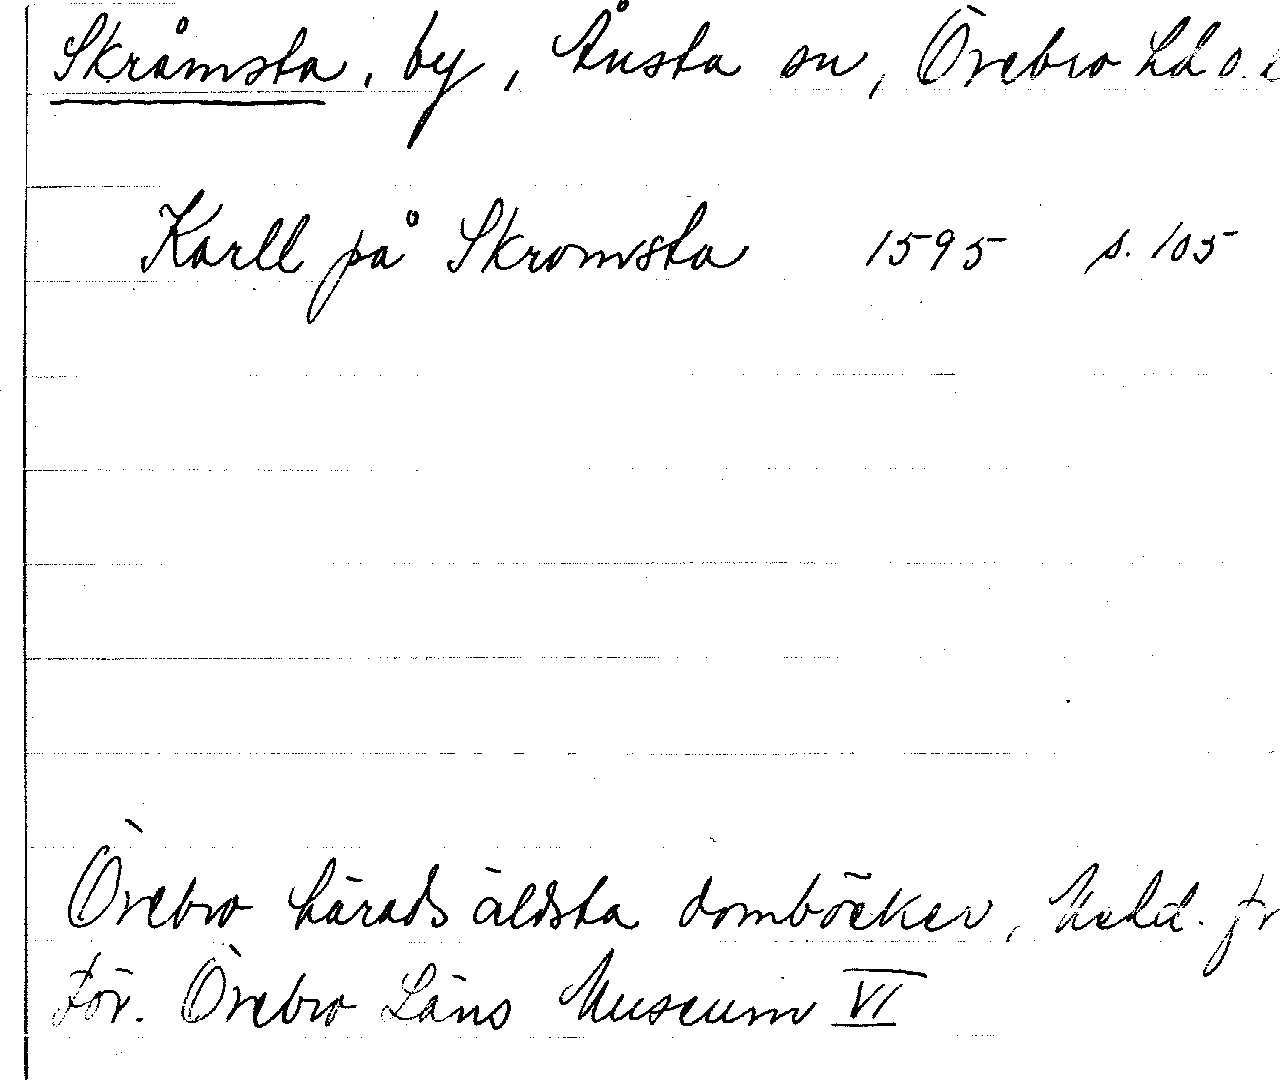 Skråmsta, by, Ånsta sn, Örebro hd o.
Karll på Skromsta 1595 s. 105
Örebro härads äldsta domböcker, Medd. fr
För. Örebro Läns Museum VI